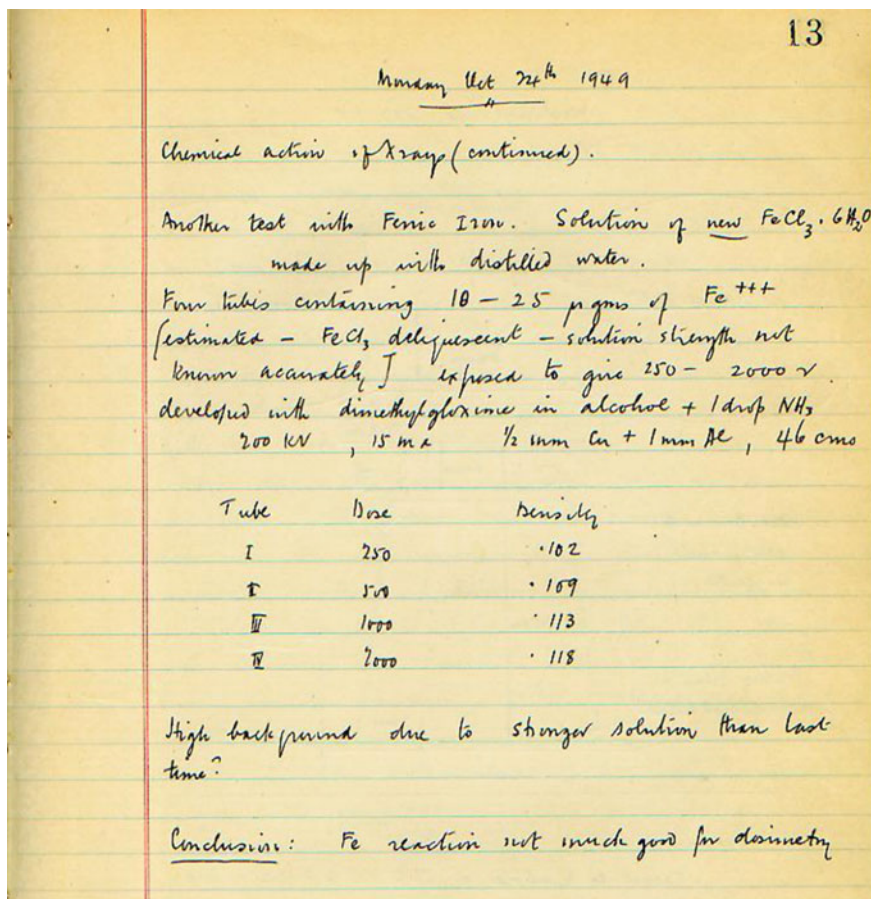 13
Monday Oct 24th 1949
Chemical action of Xrays (continued).
Another test with Ferric Iron. Solution of new FeCl3. 6H2O
made up with distilled water.
Four tubes containing 10 - 25 μ gms of Fe+++
[estimated - FeCl3 deliquescent - solution strength not
known accurately] exposed to give 250 - 2000 r
developed with dimethylgloxime in alcohol + 1 drop NH3
200 KV , 15 ma 1/2 mm Cu + 1 mm Al, 46 cms
Tube Dose Density
I 250 .102
II 500 .109
III 1000 .113
IV 2000 .118
High background due to stronger solution than last
time?
Conclusion: Fe reaction not much good for dosimetry